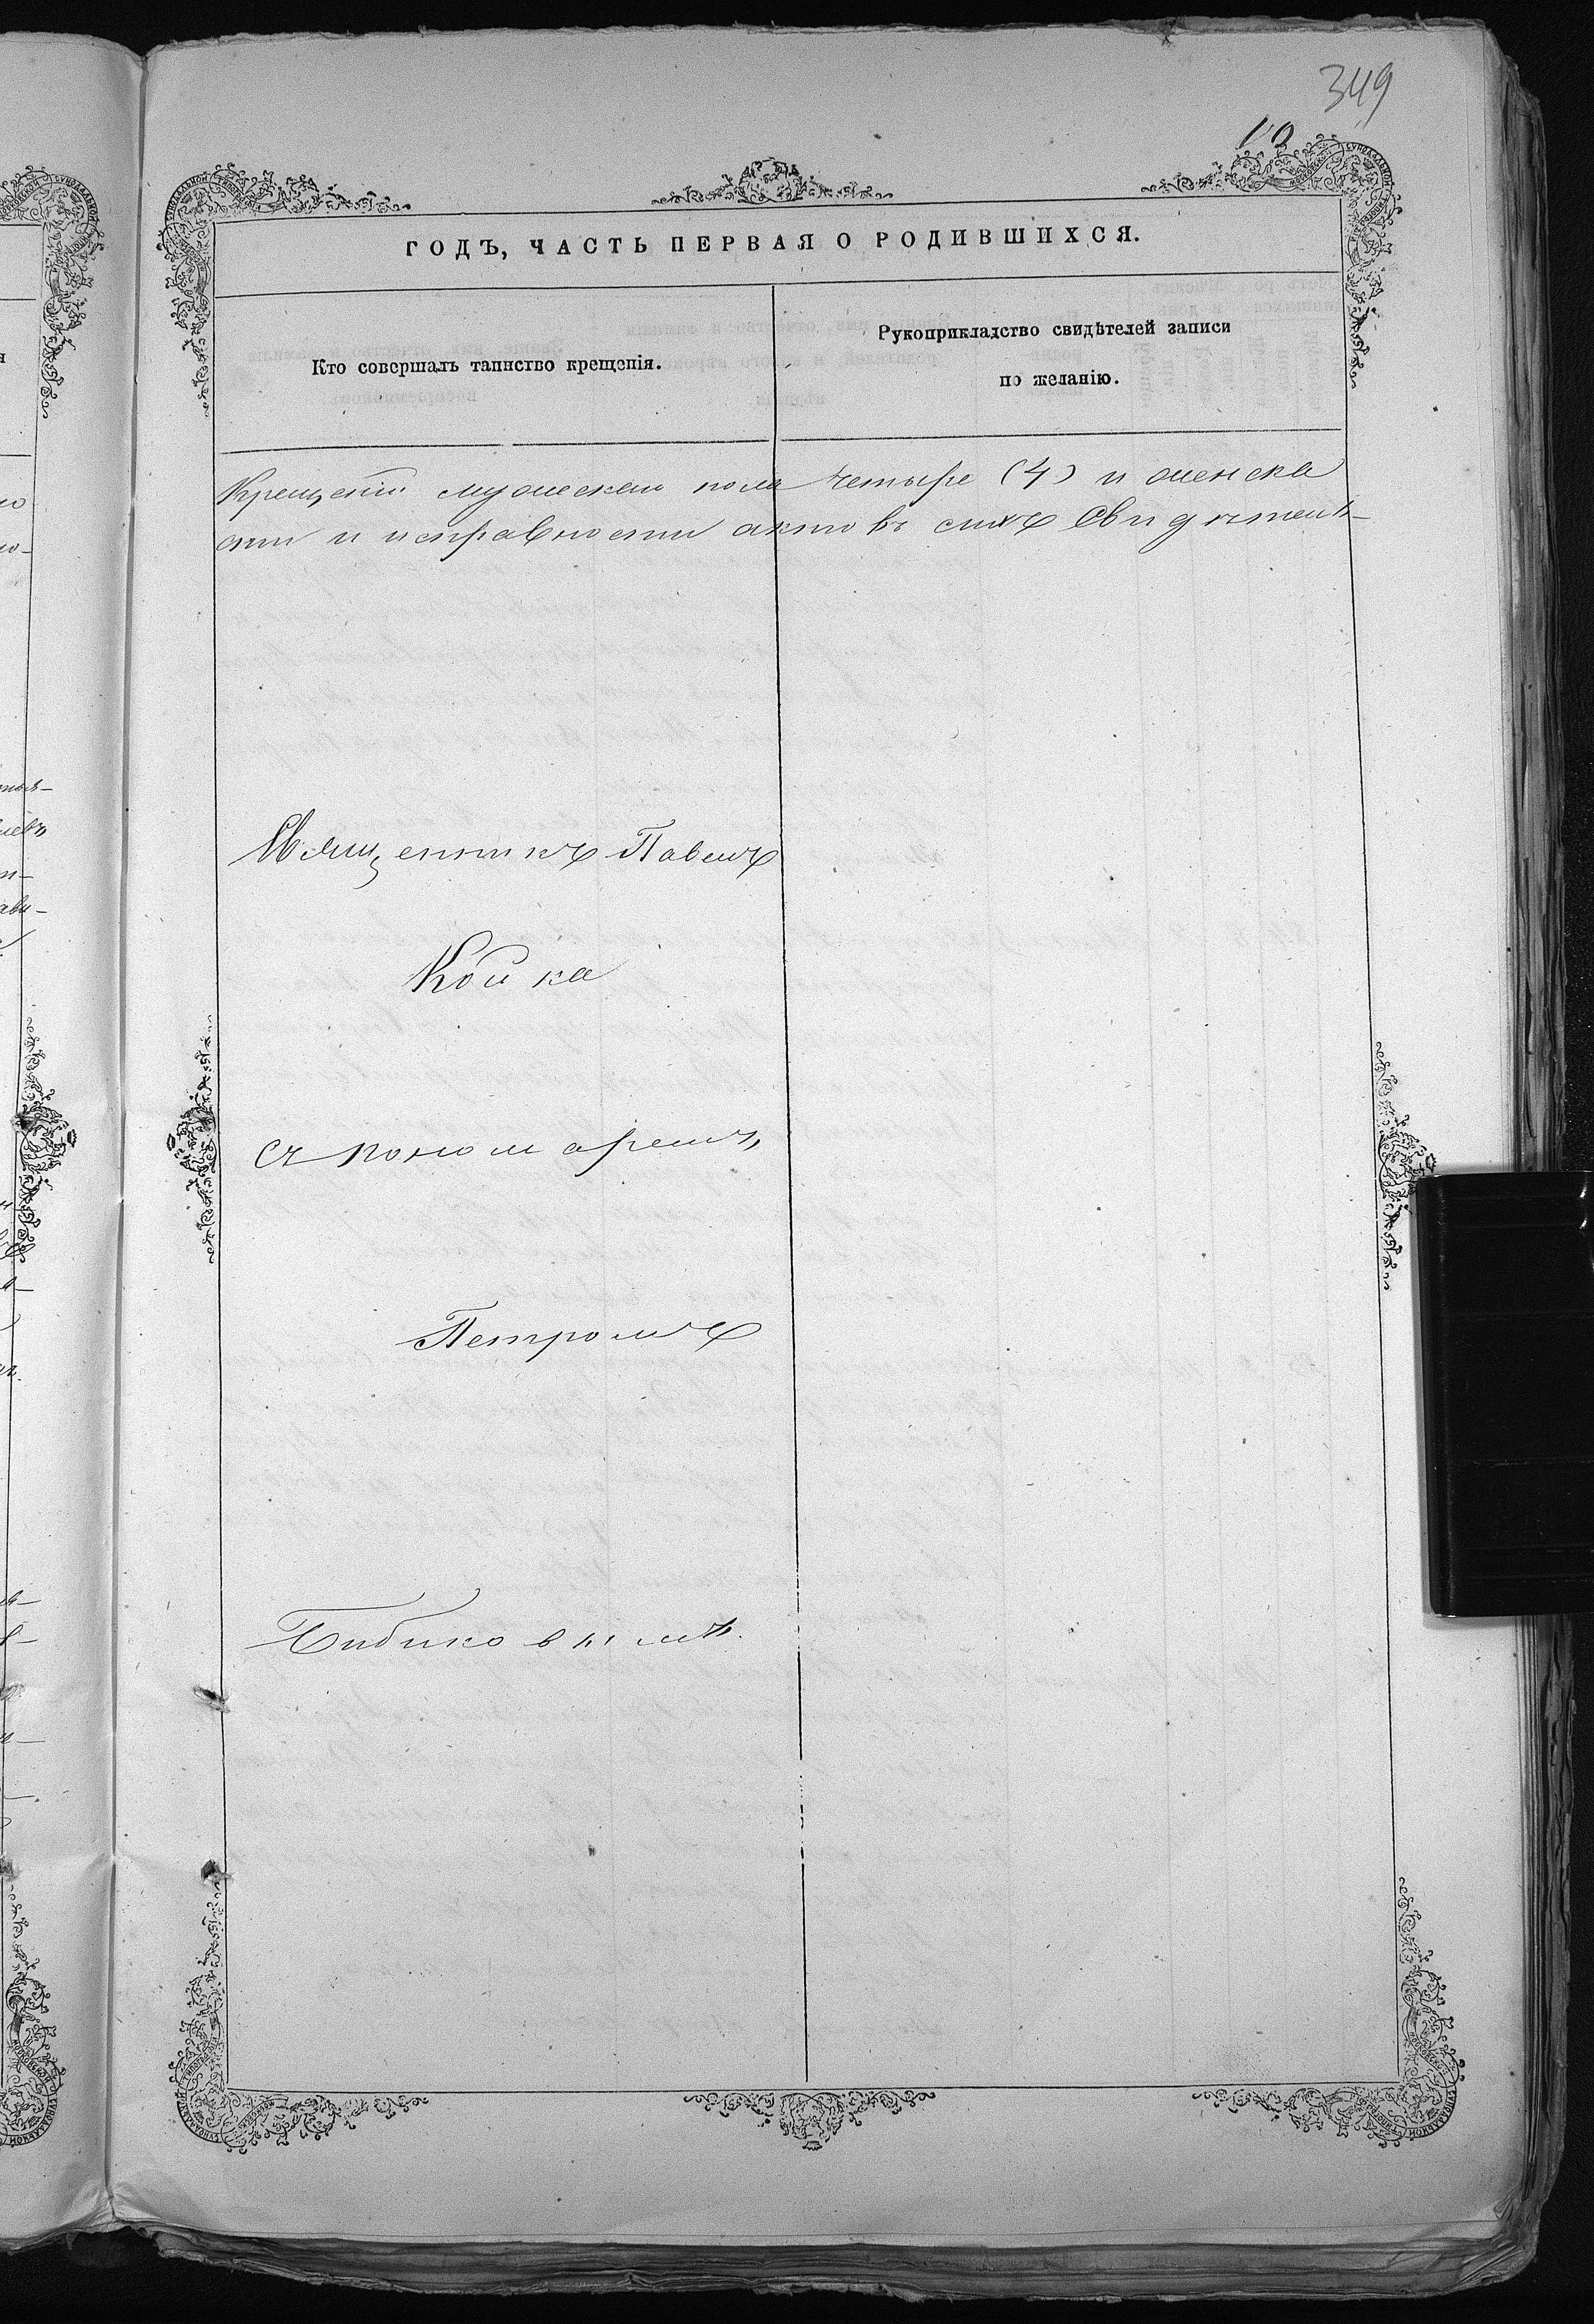 349
10
ГОДЪ, ЧАСТЬ ПЕРВАЯ О РОДИВШИХСЯ.
Кто совершалъ таинство крещенія.
Рукоприкладство свидѣтелей записи
по желанію.
Крещеній мужескаго пола четыре (4) и женска
сти и исправности актовъ сихъ Свидѣтель-
Священникъ Павелъ
Койка
съ пономаремъ
Петромъ
Бибиковымъ.